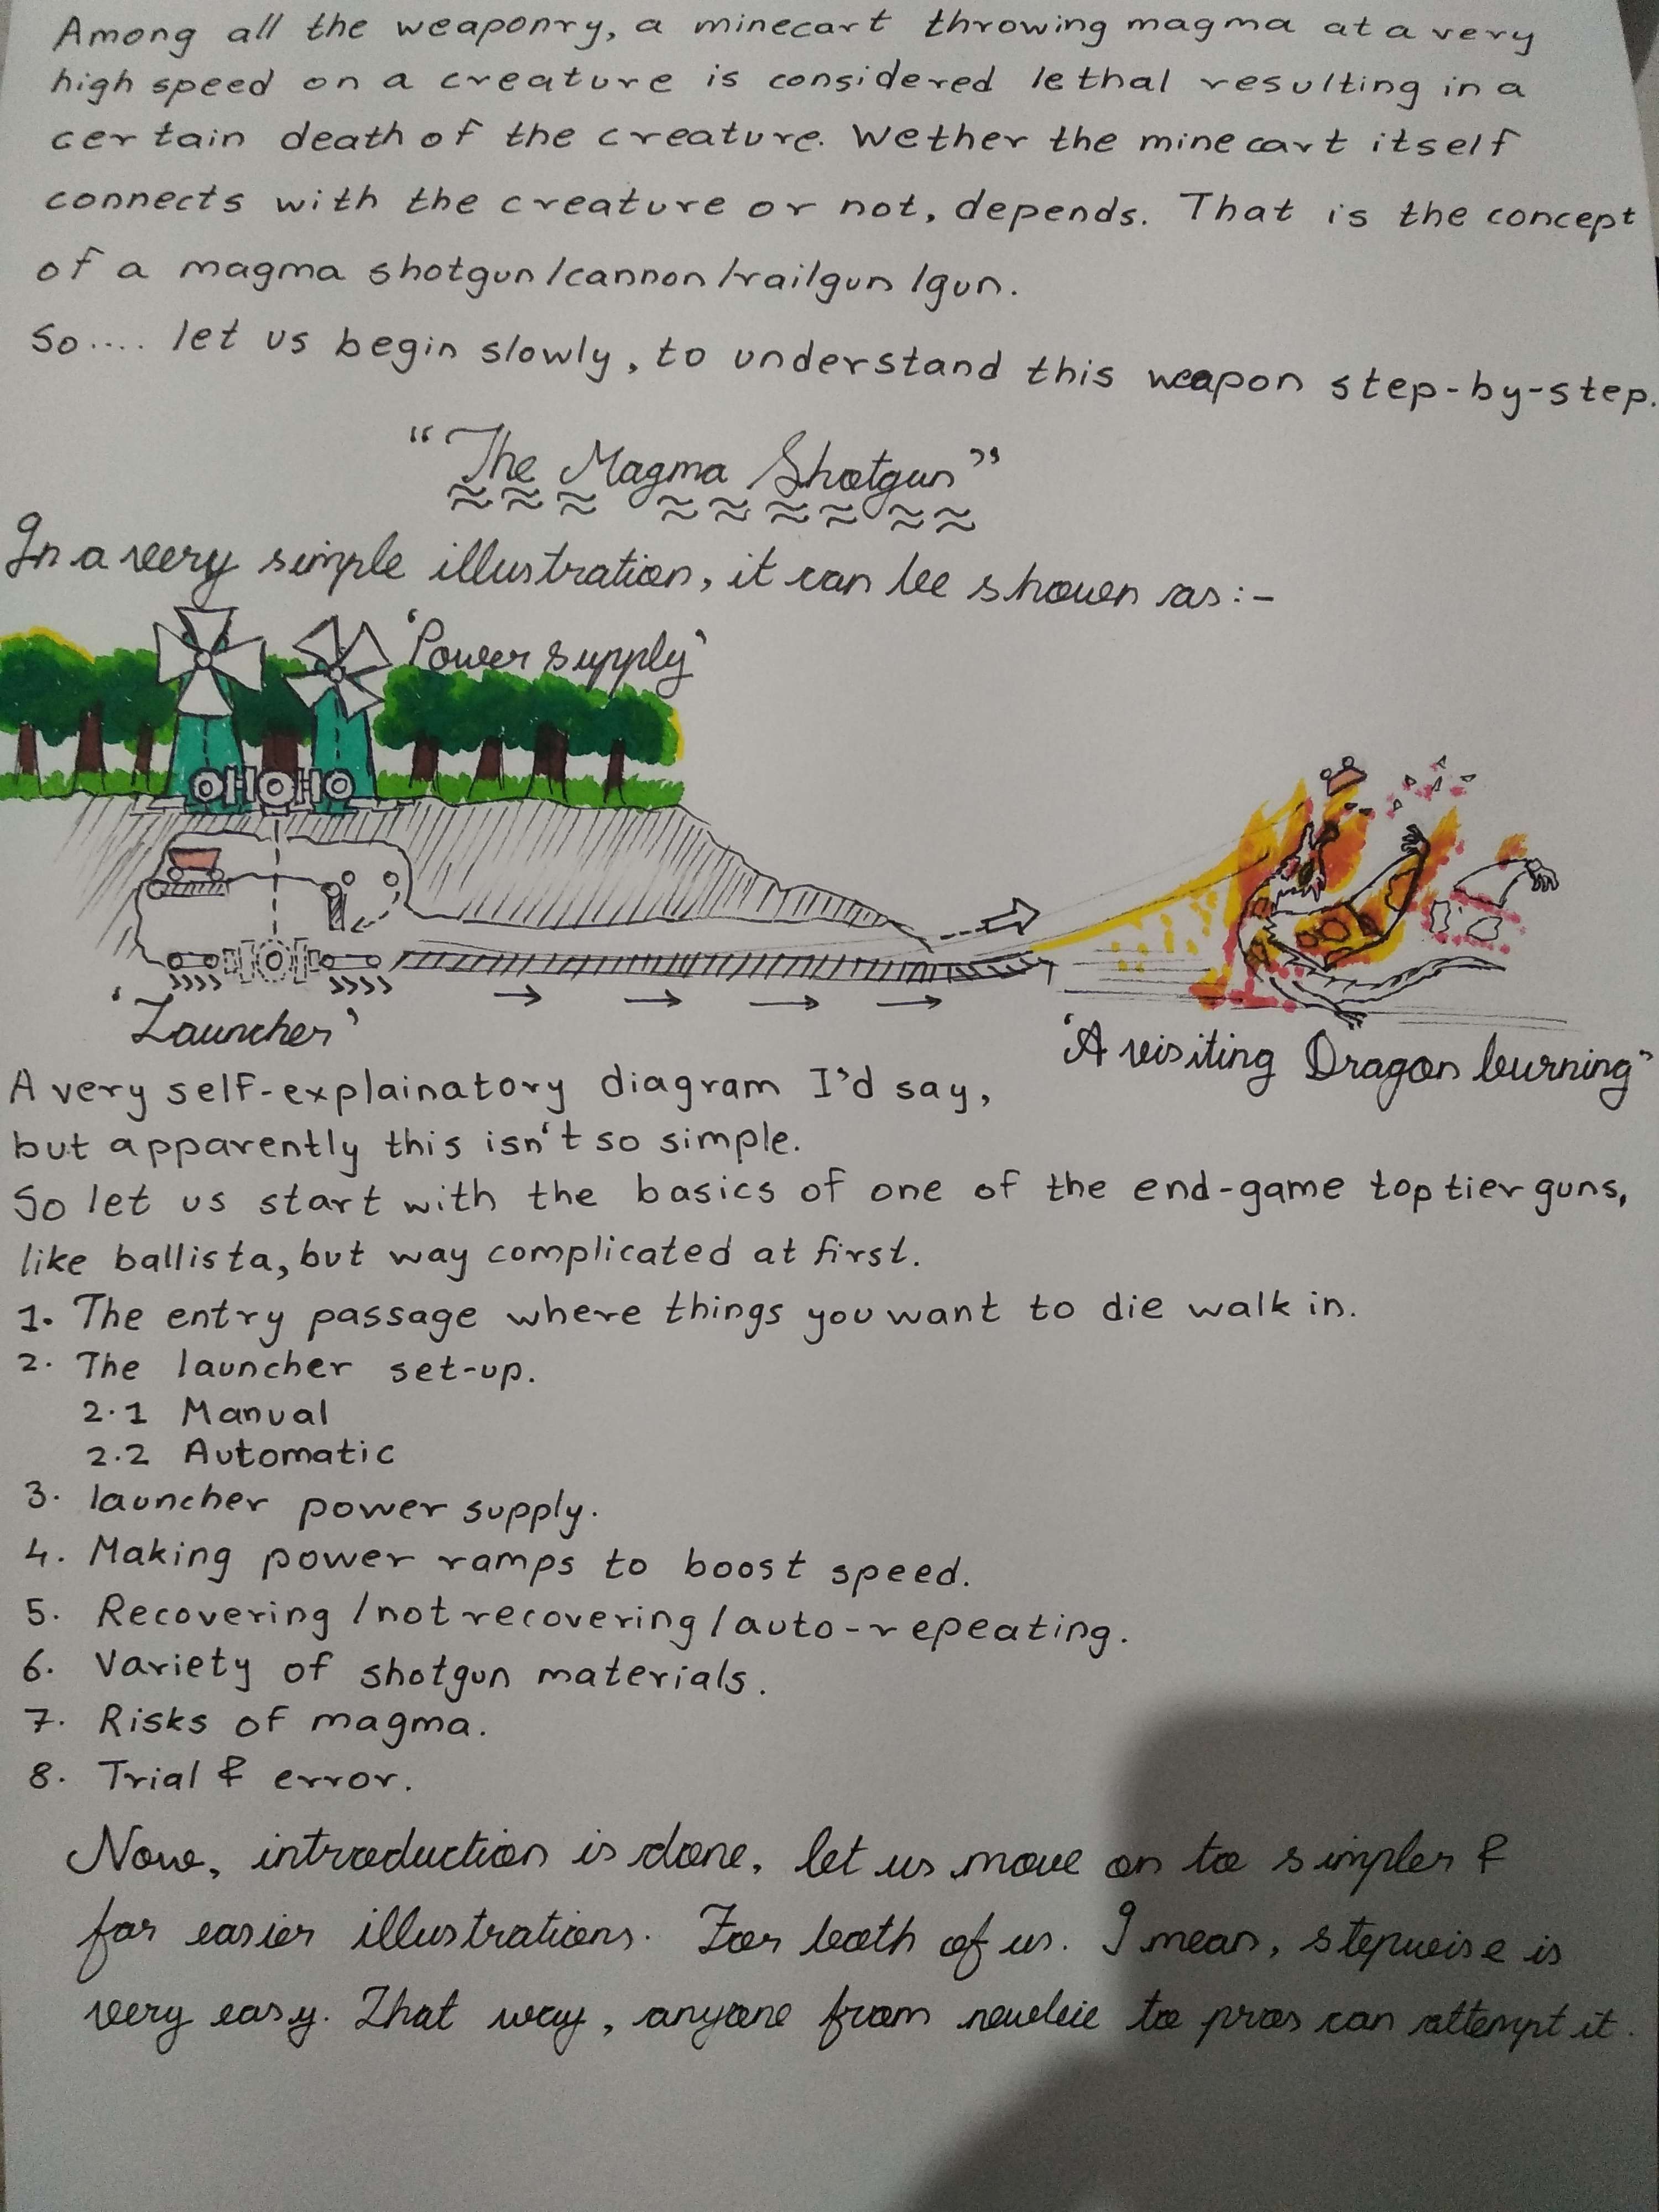 Among all the weaponry, a minecart throwing magma at a very
high speed on a creature is considered lethal resulting in a
certain death of the creature. Wether the minecart itself
connects with the creature or not, depends. That is the concept
of a magma shotgun/cannon/railgun/gun.
So.... let us begin slowly, to understand this weapon step-by-step.
"The Magma Shotgun"
In a very simple illustration, it can be shown as:-
'Power supply'
'Launcher'
'A visiting Dragon burning'
A very self-explainatory diagram I'd say,
but apparently this isn't so simple.
So let us start with the basics of one of the end-game top tier guns,
like ballista, but way complicated at first.
1. The entry passage where things you want to die walk in.
2. The launcher set-up.
2.1 Manual
2.2 Automatic
3. launcher power supply.
4. Making power ramps to boost speed.
5. Recovering/not recovering/auto-repeating.
6. Variety of shotgun materials.
7. Risks of magma.
8. Trial & error.
Now, introduction is done, let us move on to simpler &
far easier illustrations. For both of us. I mean, stepwise is
very easy. That way, anyone from newbie to pros can attempt it.